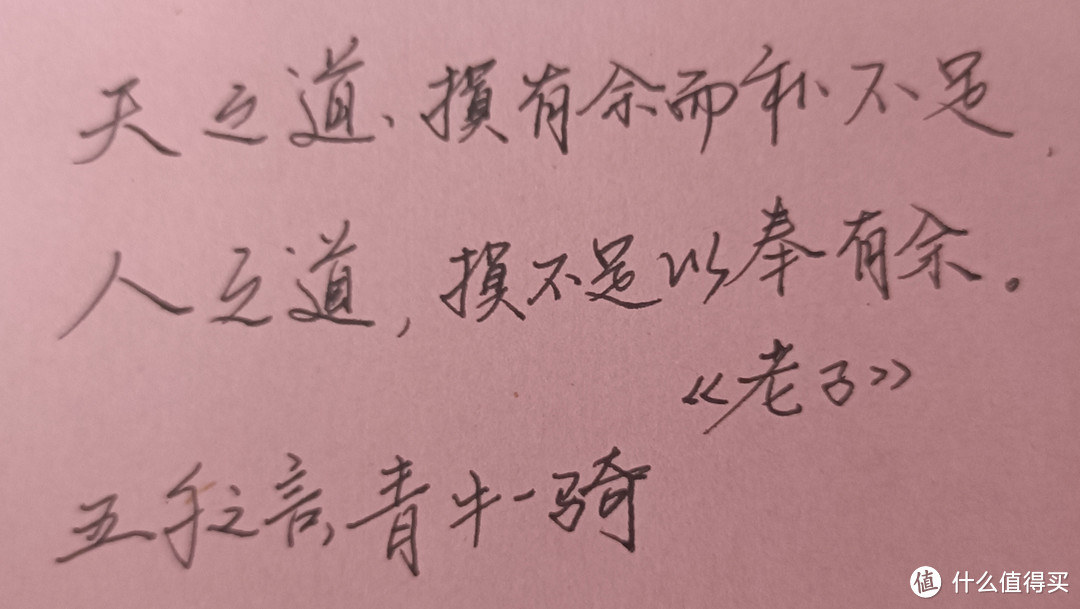 天之道、损有余而补不足,
人之道,损不足以奉有余。
《老子》
五千之言,青牛一骑
值 什么值得买